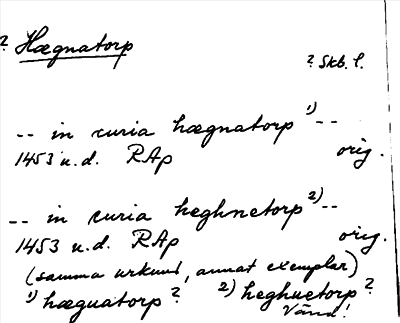 ? Hægnatorp
? Skb. l.
-- in curia hægnatorp 1) --
1453 u.d. RAp orig.
-- in curia heghnetorp 2) --
1453 u.d. RAp orig.
(samma urkund, annat exemplar)
1) hæguatorp ? 2) heghuetorp ?
Vänd!